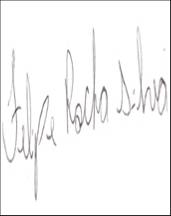 Felipe Rocha Silva